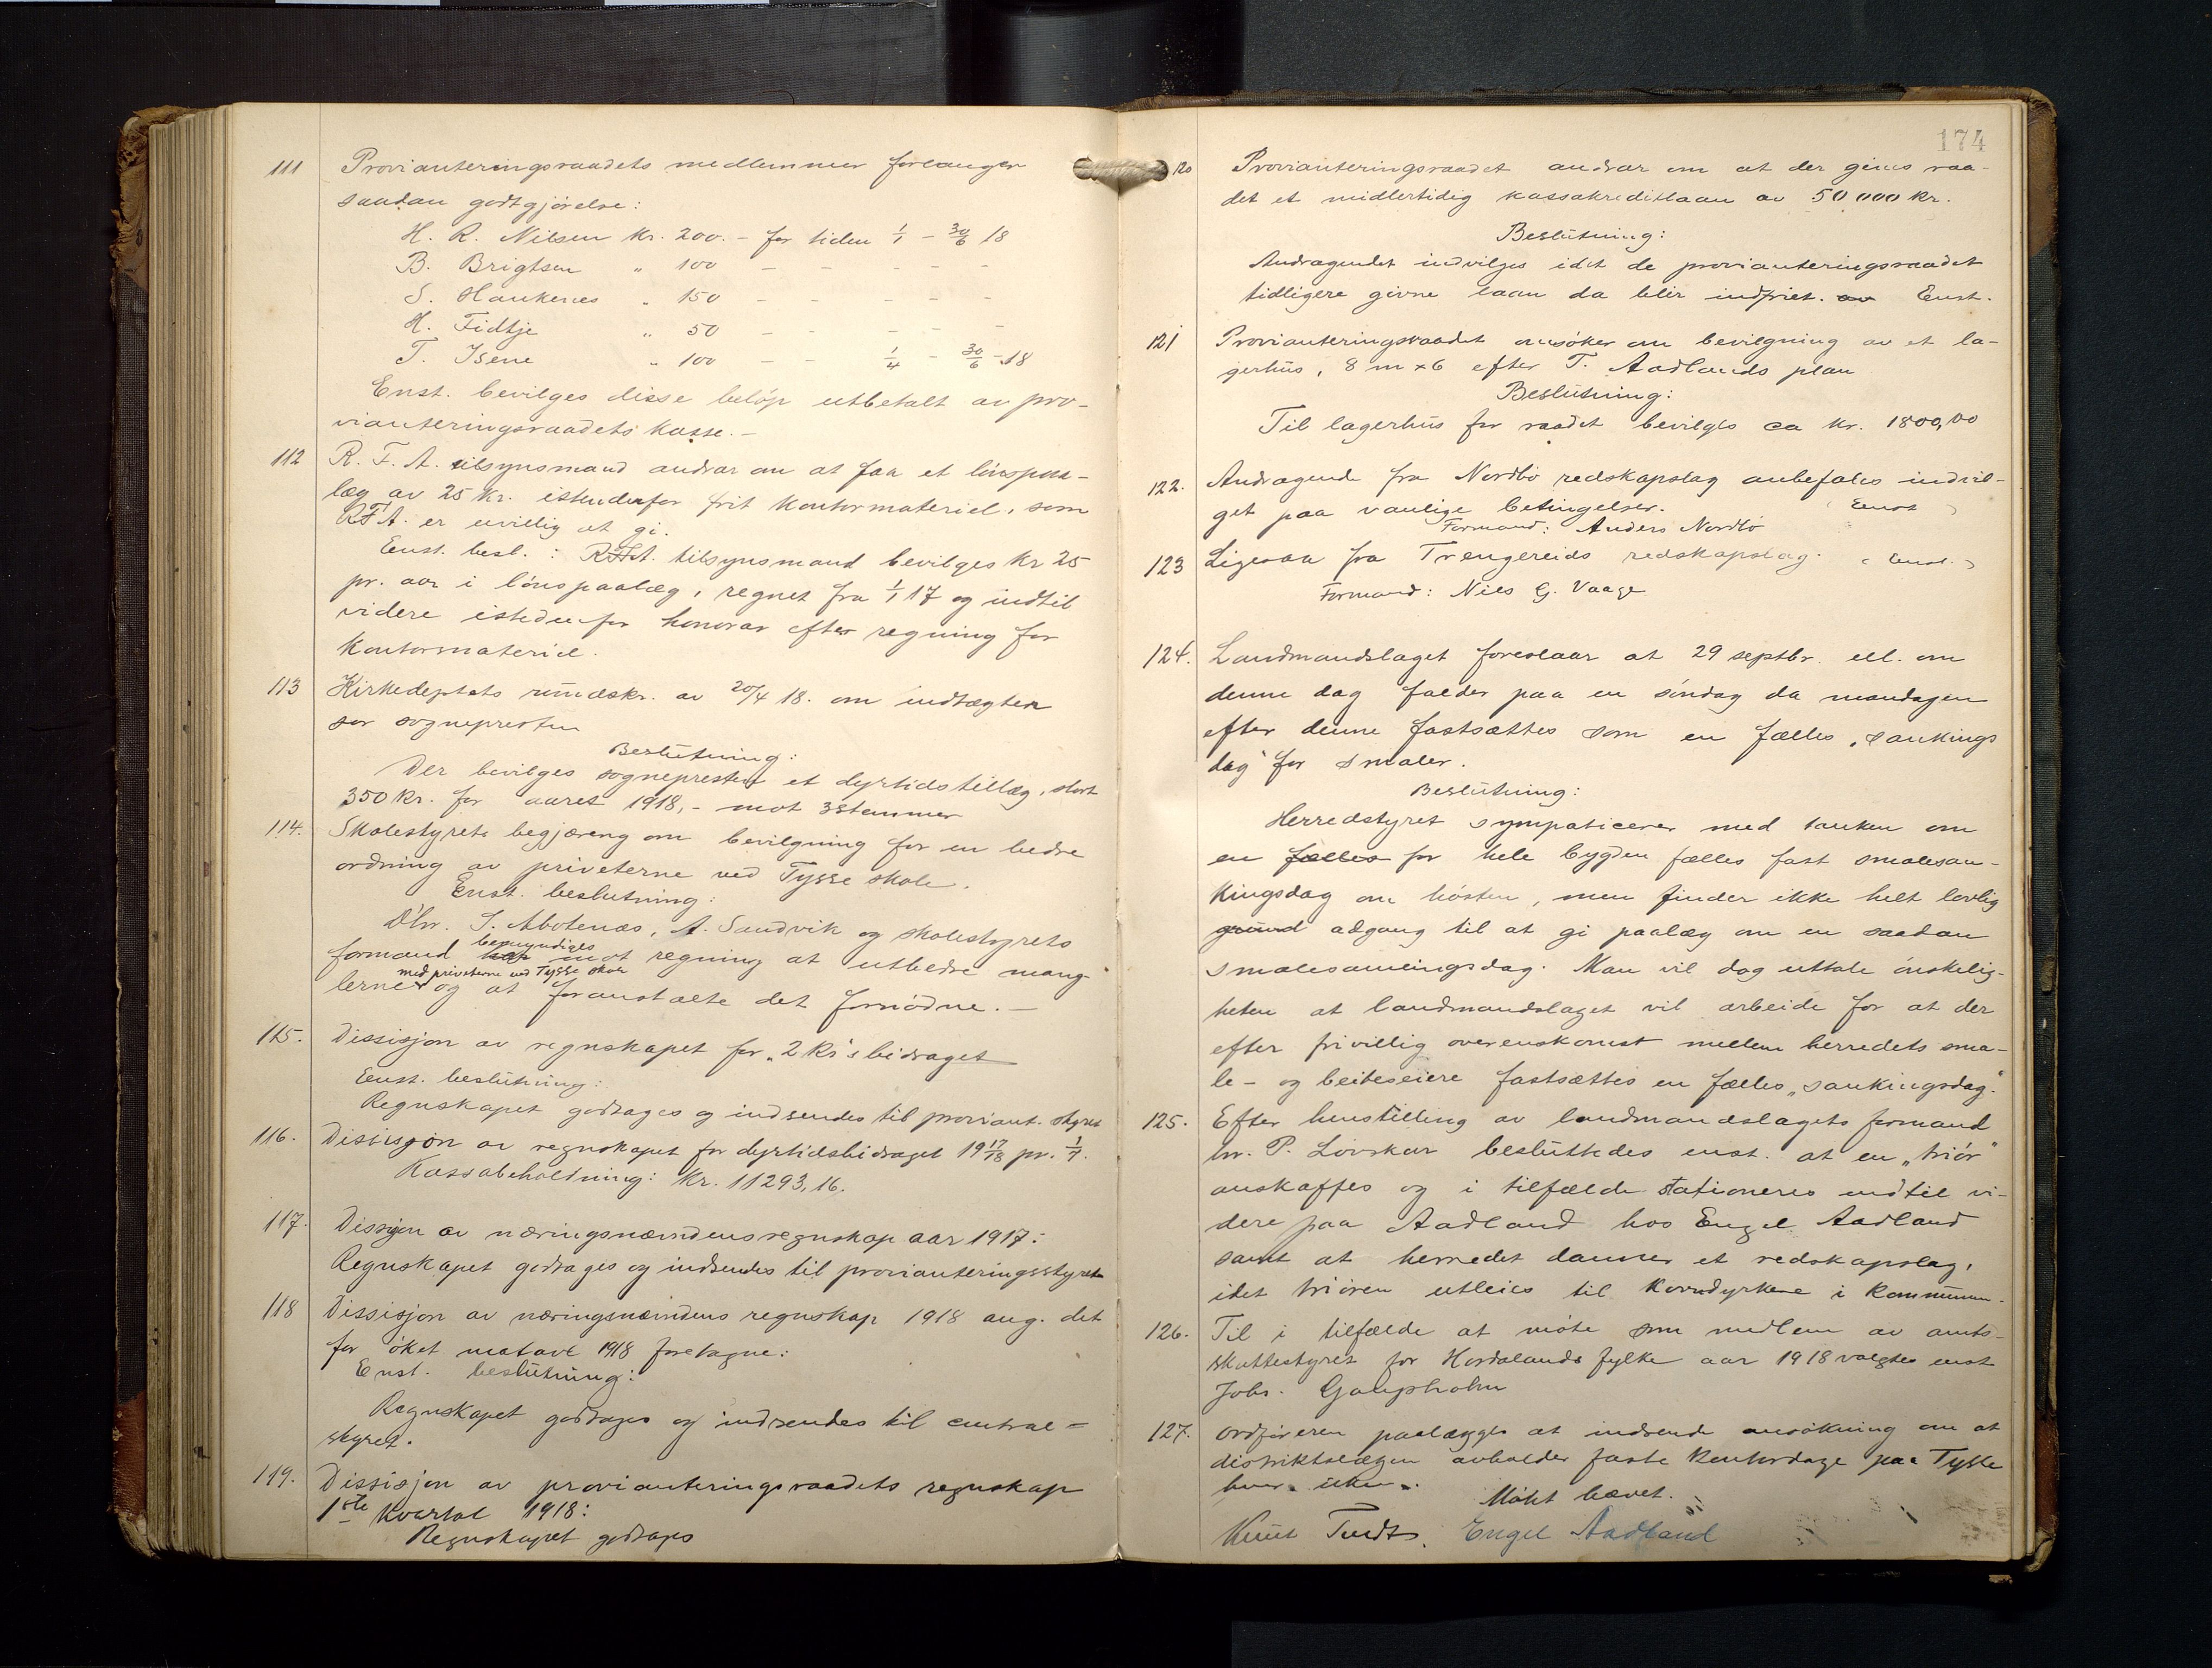 111 Provianteringsraadets medlemmer forlanger
saadan godtgjørelse:
H. R. Nilsen kr. 200.- for tiden 1/1 - 30/6 18
B. Brigtsen " 100 - - - - -
S. Haukenes " 150 - - - - -
H. Fidtje " 50 - - - - -
T. Isene " 100 - - 1/4 - 30/6 - 18
Enst. bevilges disse beløp utbetalt av pro-
vianteringsraadets kasse.-
112 R. F. A. tilsynsmand andrar om at faa et lønspaa-
læg av 25 kr. istedenfor frit kontormateriel, som
R F A. er uvillig at gi.
Enst. besl.: R.F.A. tilsynsmand bevilges kr 25
pr. aar i lønspaalæg, regnet fra 1/1 17 og indtil
videre istedenfor honorar efter regning for
kontormateriel.
113 Kirkedeptets rundskr. av 20/4 18. om indtægter
for sogneprester
Beslutning:
Der bevilges sognepresten et dyrtidstillæg, stort
350 kr. for aaret 1918,- mot 3 stemmer
114. Skolestyrets begjæreng om bevilgning for en bedre
ordning av priveterne ved Tysse skole.
Enst. beslutning:
D'hr. S. Abotenæs, A. Sandvik og skolestyrets
formand bemyndiges mot regning at utbedre mang-
lerne med priveterne ved Tysse skole og at foranstalte det fornødne.-
115. Dissisjon av regnskapet for "2 kr's bidraget
Enst. beslutning:
Regnskapet godtages og indsendes til proviant. styret
116. Dissisjon av regnskapet for dyrtidsbidraget 19 17/18 pr. 1/7.
Kassabeholtning: Kr. 11293,16.
117. Dissisjon av næringsnævndens regnskap aar 1917:
Regnskapet godtages og indsendes til provianteringsstyret
118 Dissisjon av næringsnævndens regnskap 1918 ang. det
for øket matavl 1918 foretagne:
Enst. beslutning:
Regnskapet godtages og indsendes til central=
styret.
119. Dissisjon av provianteringsraadets regnskap
1ste kvartal 1918:
Regnskapet godtages
174
120 Provianteringsraadet andrar om at der gives raa-
det et midlertidig kassakreditlaan av 50 000 kr.
Beslutning:
Andragendet indvilges idet de provianteringsraadet
tidligere givne laan da blir indfriet. Enst.
121 Provianteringsraadet ansøker om bevilgning av et la-
gerhus, 8 m x 6 efter T. Aadlands plan
Beslutning:
Til lagerhus for raadet bevilges ca kr. 1800,00
122. Andragende fra Nordbø redskapslag anbefales indvil-
get paa vanlige betingelser. ( Enst )
Formand: Anders Nordbø
123 Ligesaa fra Trengereids redskapslag. ( Enst. )
Formand: Nils G. Vaage
124. Landmandslaget foreslaar at 29 septbr. ell. om
denne dag falder paa en søndag da mandagen
efter denne fastsættes som en fælles "sankings
dag" for smaler.
Beslutning:
Herredstyret sympaticerer med tanken om
en fælles for hele bygden fælles fast smalesan-
kingsdag om høsten, men finder ikke helt lovlig
grund adgang til at gi paalæg om en saadan
smalesamlingsdag. Man vil dog uttale ønskelig-
heten at landmandslaget vil arbeide for at der
efter frivillig overenskomst mellem herredets sma-
le- og beiteseiere fastsættes en fælles "sankingsdag."
125. Efter henstilling av landmandslagets formand
hr. P. Løvskar besluttedes enst. at en "triør"
anskaffes og i tilfælde stationeres indtil vi-
dere paa Aadland hos Engel Aadland
samt at herredet danner et redskapslag,
idet triøren utleies til korndyrkere i kommunen.
126. Til i tilfælde at møte som medlem av amts-
skattestyret for Hordalands fylke aar 1918 valgtes enst
Johs.
127. Ordføreren paalægges at indsende ansøkning om at
distriktslægen avholder faste kontordage paa Tysse
hver uke.
Møtet hævet.
Knut Tvedt. Engel Aadland